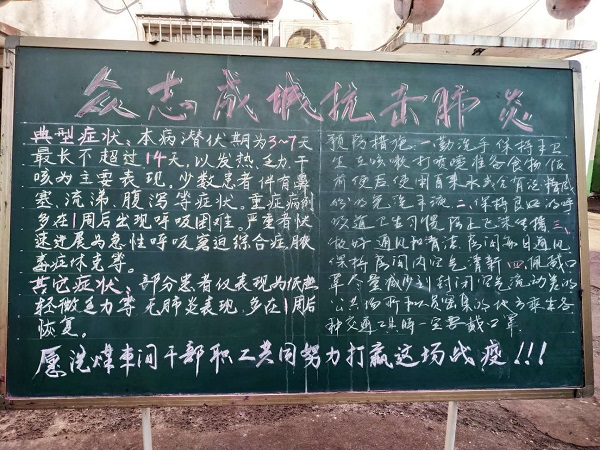 众志成城抗击肺炎
典型症状、本病潜伏期为3~7天
最长不超过14天，以发热乏力、干
咳为主要表现，少数患者伴有鼻
塞、流涕、腹泻等症状。重症病例
多在1周后出现呼吸困难。严重者快
速进展为急性呼吸窘迫综合症、脓
毒症休克等。
其它症状、部分患者仅表现为低热
轻微乏力等 无肺炎表现，多在1周后
恢复。
预防措施 一、勤洗手 保持手卫
生 在咳嗽打喷嚏准备食物 饭
前便后使用
洗手液 二、保持良好的呼
吸道卫生习惯 防止
做好通风和清洁 房间每日通风
保持房间内空气清新 四、佩戴口
罩 尽量减少到封闭 空气流动差的
公共场所和人员密集的地方 乘坐各
种交通工具时一定要戴口罩
愿洗煤车间干部职工共同努力打赢这场战疫!!!